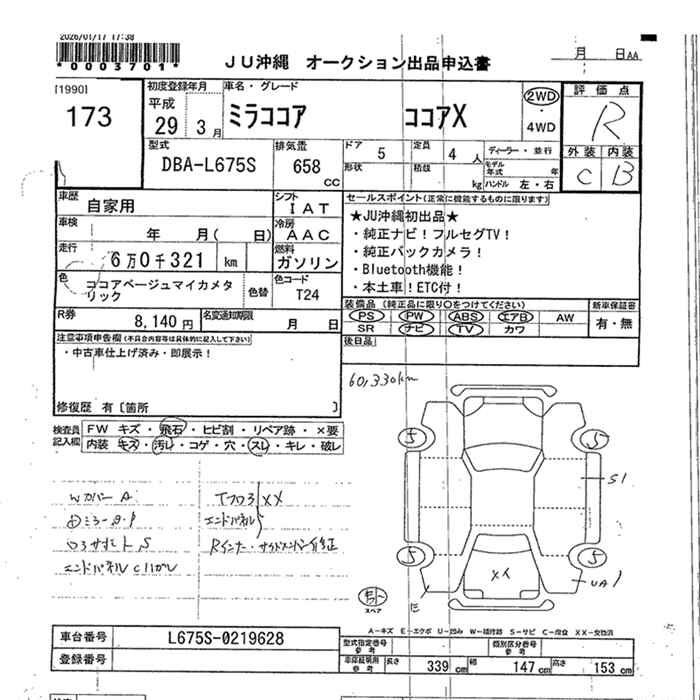 2026/01/17 17:38
*0003701*
JU沖縄 オークション出品申込書
月 日AA
[1990]
173
初度登録年月
平成
29 3月
車名・グレード
ミラココア ココアX
2WD
・
4WD
評価点
R
外装 内装
C B
型式
DBA-L675S
排気量
658
cc
ドア
5
定員
4人
形状
積載
kg
ディーラー・並行
モデル年式 年
ハンドル 左・右
車歴
自家用
シフト
IAT
車検
年 月( 日)
冷房
AAC
走行
6万0千321 km
燃料
ガソリン
色
ココアベージュマイカメタリック
色替
色コード
T24
セールスポイント(正常に機能するものに限ります)
★JU沖縄初出品★
・純正ナビ!フルセグTV!
・純正バックカメラ!
・Bluetooth機能!
・本土車!ETC付!
装備品 (純正品に限り○をつけてください)
PS PW ABS エアB AW
SR ナビ TV カワ
新車保証書
有・無
後日品
R券
8,140円
名変通知期限
月 日
注意事項申告欄(不具合内容等は具体的に記入して下さい)
・中古車仕上げ済み・即展示!
修復歴 有〔箇所 〕
60,330km
検査員記入欄
FW キズ・飛石・ヒビ割・リペア跡・×要
内装 キズ・汚レ・コゲ・穴・スレ・キレ・破レ
WカバーA
Tフロア XX
エンドパネル
エンドパネルC
S
5
5
S1
5
5
XX
UA1
E
スペア
A-キズ E-エクボ U-凹み W-補修跡 S-サビ C-腐食 XX-交換済
車台番号
L675S-0219628
登録番号
型式指定番号
参考
類別区分番号
参考
車庫証明用
参考
長さ 339cm
幅 147cm
高さ 153cm